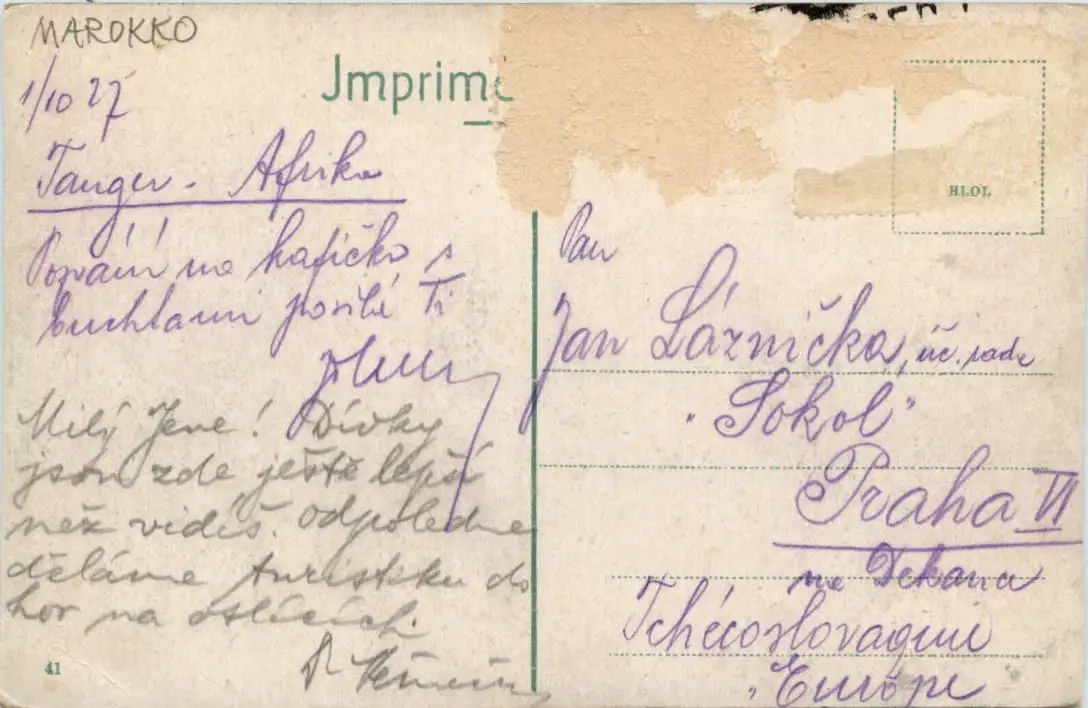 MAROKKO
1/10 27
Imprimé
Tanger - Afrika
Pozvání na kafíčko s
buchtami posílá Ti
Milý Jene! Dívky
jsou zde ještě lepší
než vidíš. Odpoledne
děláme turistiku do
hor na oslících.
41
HLOL
Pan
Jan Láznička, úč. rada
"Sokol"
Praha VI
na Děkance
Tchécoslovaquie
"Europe